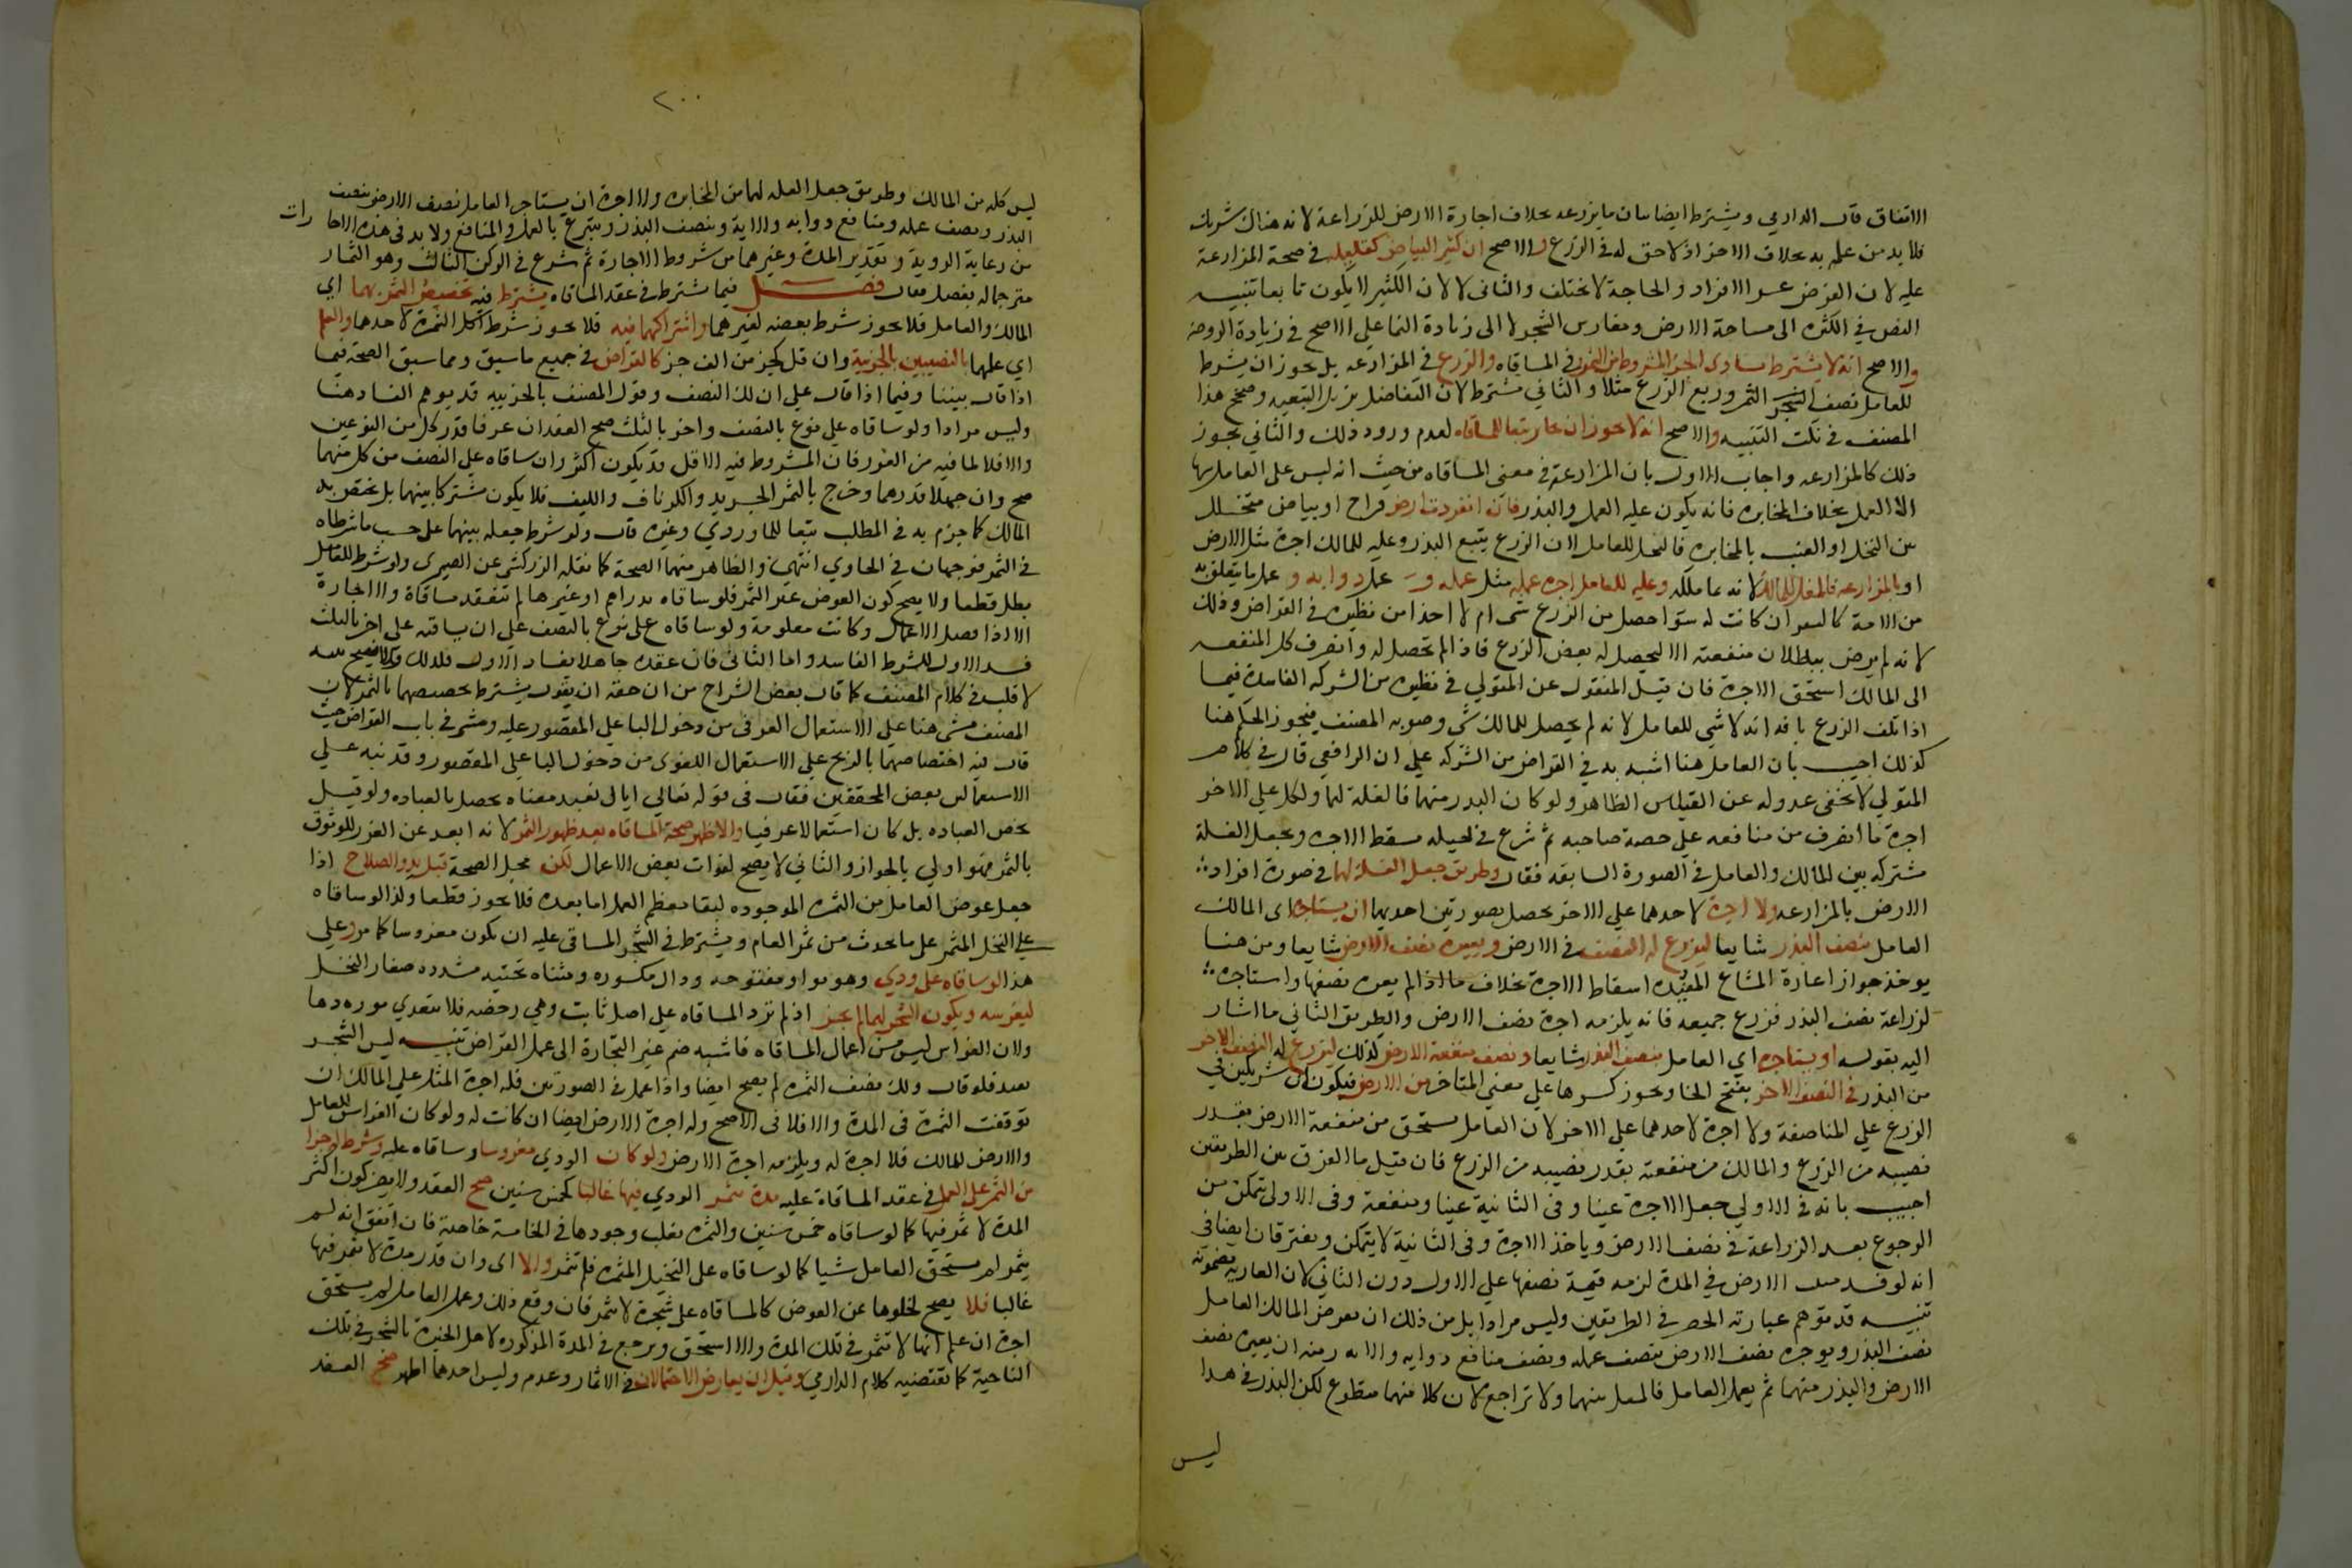 الاتفاق قال الدارمي ويشترط ايضا بيان ما يزرعه بخلاف اجارة الارض للزراعة لانه هناك شريك
فلا بد من علمه به بخلاف الاخر اذ لا حق له في الزرع والاصح ان كثير البياض كقليله في صحة المزارعة
عليه لان الغرض عسر الافراد والحاجة لا تختلف والثاني لا لان الكثير لا يكون تابعا تنبيه
النص في الكثرة الى مساحة الارض ومغارس الشجر لا الى زيادة النما على الاصح في زيادة الروضة
والاصح انه لا يشترط تساوى الجزء المشروط من الثمر في المساقاه والزرع في المزارعه بل يجوز ان يشرط
للعامل نصف الشجر الثمر وربع الزرع مثلا والثاني يشترط لان التفاضل يزيل التبعيه وصحح هذا
المصنف في نكت التنبيه والاصح انه لا يجوز ان يخابر تبعا للمساقاه لعدم ورود ذلك والثاني يجوز
ذلك كالمزارعه واجاب الاول بان المزارعة في معنى المساقاه من حيث انه ليس على العامل بها
الا العمل بخلاف المخابره فانه يكون عليه العمل والبذر فان انفردت ارض قراح او بياض متخلل
بين النخل او العنب بالمخابره فالمغل للعامل لان الزرع يتبع البذر وعليه للمالك اجرة مثل الارض
او بالمزارعه فالمغل للمالك لانه نما ملكه وعليه للعامل اجره عمله مثل عمله و عمل دوابه و عمل ما يتعلق به
من الالة كالبقر ان كانت له سوا حصل من الزرع شي ام لا اخذا من نظيره في القراض وذلك
لانه لم يرض ببطلان منفعته الا ليحصل له بعض الزرع فاذا لم تحصل له وانصرف كل المنفعه
الى المالك استحق الاجرة فان قيل المنقول عن المتولي في نظيره من الشركه الفاسدة فيما
اذا تلف الزرع بافه انه لا شي للعامل لانه لم يحصل للمالك شي وصوبه المصنف فيجوز الحكم هنا
كذلك اجيب بان العامل هنا اشبه به في القراض من الشركه على ان الرافعي قال في كلام
المتولي لا يخفى عدوله عن القياس الظاهر ولو كان البذر منهما فالغلة لهما ولكل على الاخر
اجرة ما انصرف من منافعه على حصة صاحبه ثم شرع في لحيله مسقط الاجره ويجعل الغلة
مشتركه بين المالك والعامل في الصورة السابقه فقال وطريق جعل الغلة لهما في صورة افراد
الارض بالمزارعه ولا اجرة لاحدهما على الاخر تحصل بصورتين احديهما ان يستاجره اى المالك
العامل بنصف البذر شايعا ليزرع له النصف في الارض ويعيره نصف الارض شايعا ومن هنا
يوخذ جواز اعارة المشاع المفيدة اسقاط الاجرة بخلاف ما اذا لم يعره نصفها واستاجره
لزراعة نصف البذر فزرع جميعه فانه يلزمه اجرة نصف الارض والطريق الثاني ما اشار
اليه بقوله او يستاجره اي العامل بنصف البذر شايعا ونصف منفعة الارض كذلك ليزرع له النصف الاخر
من البذر في النصف الاخر بفتح الخا ويجوز كسرها على معنى المتاخر من الارض فيكونان شريكين في
الزرع على المناصفة ولا اجرة لاحدهما على الاخر لان العامل يستحق من منفعة الارض بقدر
نصيبه من الزرع والمالك من منفعته بقدر نصيبه من الزرع فان قيل ما الفرق بين الطريقين
اجيب بانه في الاولي جعل الاجرة عينا وفي الثانية عينا ومنفعة وفي الاولى يتمكن من
الرجوع بعد الزراعة في نصف الارض وياخذ الاجرة وفي الثانية لا يتمكن ويفترقان ايضا في
انه لو فسد منبت الارض في المدة لزمه قيمة نصفها على الاول دون الثاني لان العارية مضمونة
تنبيه قد توهم عبارته الحصر في الطريقين وليس مرادا بل من ذلك ان يقرض المالك العامل
نصف البذر ويوجره نصف الارض بنصف عمله ونصف منافع دوابه والاته ومنه ان يعيره نصف
الارض والبذر منهما ثم يعمل العامل فالمغل بينهما ولا تراجع لان كلا منهما متطوع لكن البذر في هذا
ليس
٢٠٠
ليس كله من المالك وطريق جعل الغله لهما من المخابره ولا اجرة ان يستاجر العامل نصف الارض بنصف
البذر ونصف عمله ومنافع دوابه والاته وبنصف البذر ويتبرع بالعمل والمنافع ولا بد في هذه الاجا رات
من رعاية الروية وتقدير المدة وغيرهما من شروط الاجارة ثم شرع في الركن الثالث وهو الثمار
مترجما له بفصل فقال فصل فيما يشترط في عقد المساقاه يشترط فيه تخصيص الثمر بهما اي
المالك والعامل فلا يجوز شرط بعضه لغيرهما واشتراكهما فيه فلا يجوز شرط كل الثمرة لاحدهما والعلم
اي علمهما بالنصيبين بالجزية وان قل كجزء من الف جزء كالقراض في جميع ما سبق ومما سبق الصحة فيما
اذا قال بيننا وفيما اذا قال على ان لك النصف وقول المصنف بالجزييه قد يوهم الفساد هنا
وليس مرادا ولو ساقاه على نوع بالنصف واخر بالثلث صح العقد ان عرفا قدر كل من النوعين
والا فلا لما فيه من الغرر فان المشروط فيه الاقل قد يكون اكثر وان ساقاه على النصف من كل منهما
صح وان جهلا قدرهما وخرج بالثمر الجريد والكرناف والليف فلا يكون مشتركا بينهما بل يختص به
المالك كما جزم به في المطلب تبعا للماوردي وغيره قال ولو شرط جعله بينهما على حسب ما شرطاه
في الثمر فوجهان في الحاوي انتهى والظاهر منهما الصحة كما نقله الزركشي عن الصيمري ولو شرط للعامل
بطل قطعا ولا يصح كون العوض غير الثمر فلو ساقاه بدراهم او غيرها لم تنعقد مساقاة ولا اجارة
الا اذا فصل الاعمال وكانت معلومة ولو ساقاه على نوع بالنصف على ان يساقيه على اخر بالثلث
فسد الاول للشرط الفاسد واما الثاني فان عقده جاهلا بفساد الاول فكذلك والا فيصح تنبيه
لا قلب في كلام المصنف كما قال بعض الشراح من ان حقه ان يقول يشترط تخصيصهما بالثمر لان
المصنف مشى هنا على الاستعمال العرفى من دخول البا على المقصور عليه ومشى في باب القراض حيث
قال فيه اختصاصهما بالربح على الاستعمال اللغوى من دخول البا على المقصور وقد نبه على
الاستعمالين بعض المحققين فقال في قوله تعالي اياك نعبد معناه نخصك بالعباده ولو قيل
نخص العباده بك كان استعمالا عرفيا والاظهر صحة المساقاه بعد ظهور الثمر لانه ابعد عن الغرر للوثوق
بالثمر فهو اولي بالجواز والثاني لا يصح لفوات بعض الاعمال لكن محل الصحة قبل بدو الصلاح اذا
جعل عوض العامل من الثمره الموجوده لبقا معظم العمل اما بعده فلا يجوز قطعا ولذا لو ساقاه
على النخل المثمر على ما يحدث من ثمر العام ويشترط في الشجر المساقى عليه ان يكون مغروسا كما مر وعلى
هذا لو ساقاه على ودي وهو بواو مفتوحه ودال مكسوره ومثناه تحتيه مشدده صغار النخل
ليغرسه ويكون الشجر لهما لم يجز اذ لم ترد المساقاه على اصل ثابت وهي رخصه فلا تتعدي موردها
ولان الغراس ليس من اعمال المساقاه فاشبه ضم غير التجارة الى عمل القراض تنبيه ليس الشجر
بقيد فلو قال ولك نصف الثمره لم يصح ايضا واذا عمل في الصورتين فله اجرة المثل على المالك ان
توقعت الثمرة في المدة والا فلا في الاصح وله اجرة الارض ايضا ان كانت له ولو كان الغراس للعامل
والارض للمالك فلا اجرة له ويلزمه اجرة الارض ولو كان الودي مغروسا وساقاه عليه وشرط له جزءا
من الثمر على العمل في عقد المساقاة عليه مدة يثمر الودي فيها غالبا كخمس سنين صح العقد ولا يضر كون اكثر
المدة لا ثمر فيها كما لو ساقاه خمس سنين والثمره يغلب وجودها في الخامسة خاصة فان اتفق انه لم
يثمر لم يستحق العامل شيا كما لو ساقاه على النخيل المثمره فلم تثمر والا اى وان قدر مدة لا يثمر فيها
غالبا فلا يصح لخلوها عن العوض كالمساقاه على شجرة لا تثمر فان وقع ذلك وعمل العامل لم يستحق
اجرة ان علم انها لا تثمر في تلك المدة والا استحق ويرجع في المدة المذكوره لاهل الخبرة بالشجر في تلك
الناحية كما يقتضيه كلام الدارمي وقيل ان تعارض الاحتمالان في الاثمار وعدمه وليس احدهما اظهر صح العقد